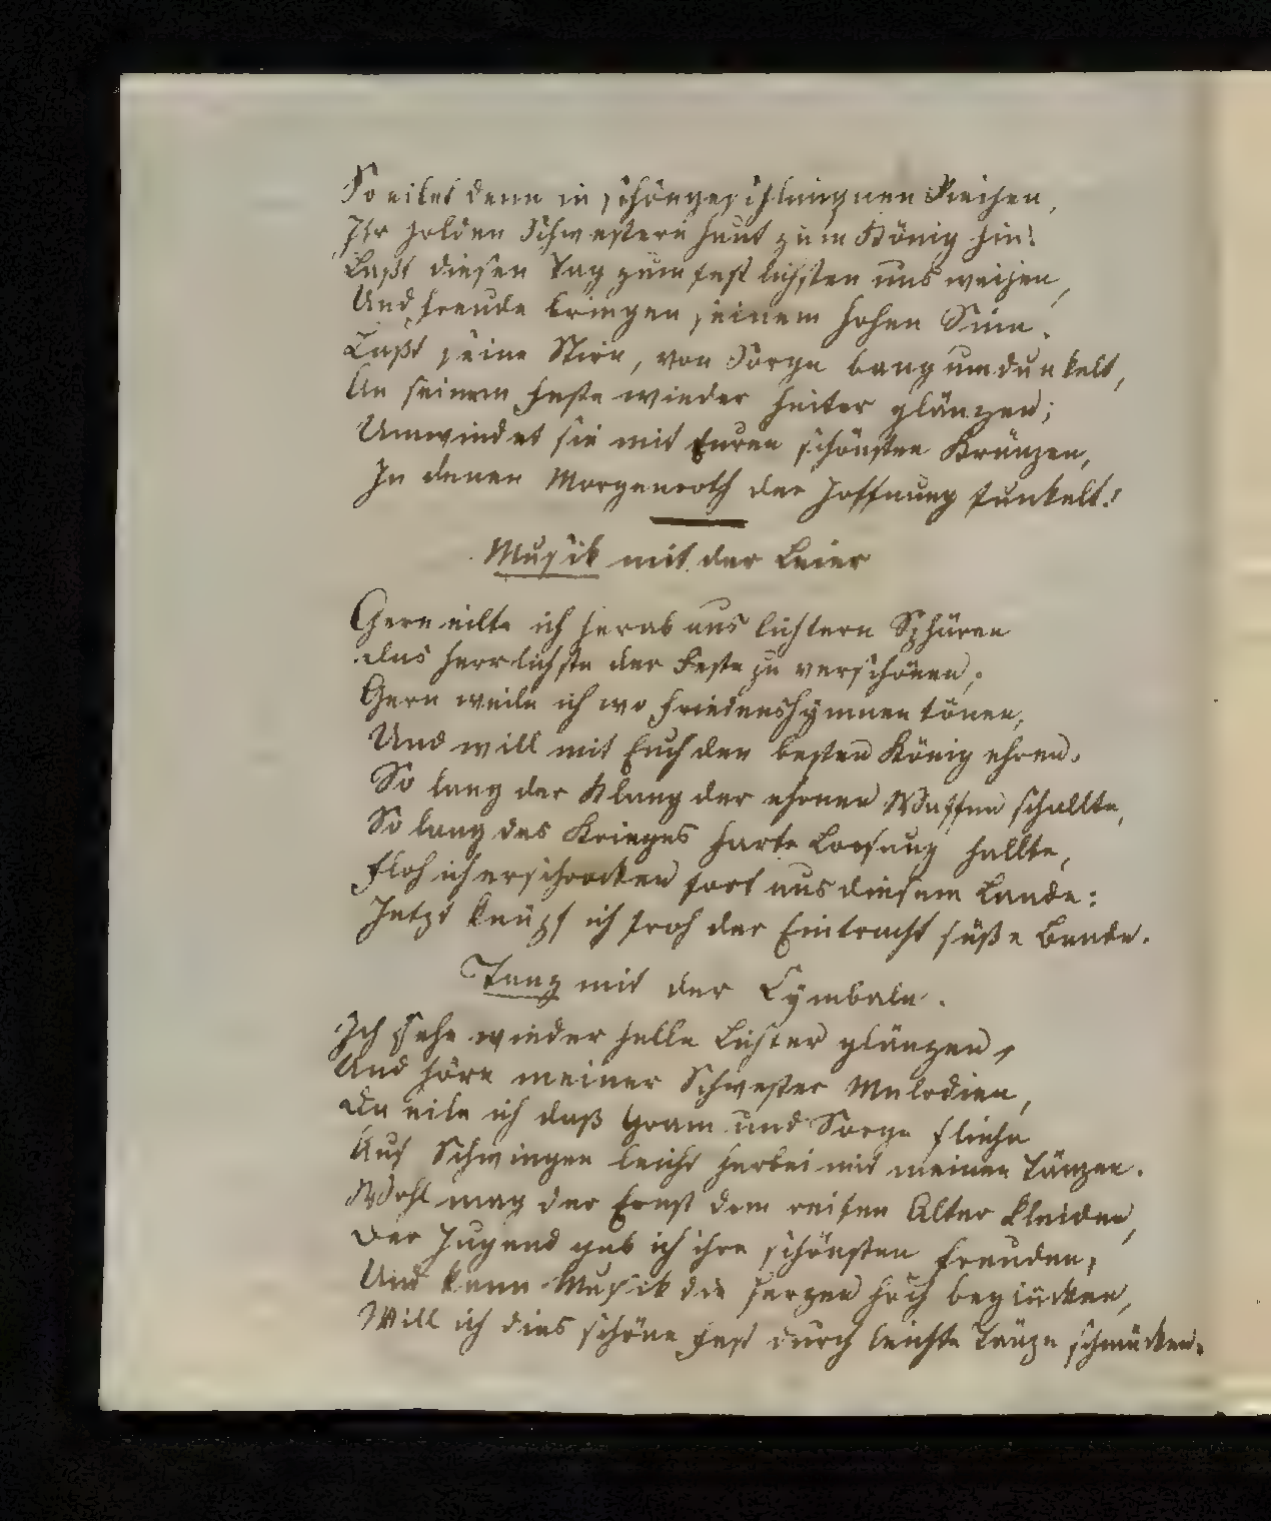 So eilet denn in schöngeschlungnen Reihen,
Ihr holden Schwestern heut zum König hin!
Laßt diesen Tag zum festlichsten uns weihen,
Und Freude bringen seinem hohen Sinn.
Laßt seine Stirn, von Sorge bang umdunkelt,
An seinem Feste wieder heiter glänzen;
Umwindet sie mit Euren schönsten Kränzen,
In denen Morgenroth der Hoffnung funkelt!
Musik mit der Leier
Gern eilte ich herab aus lichtern Sphären
das herrlichste der Feste zu verschönen,
Gern weile ich wo Friedenshymnen tönen,
Und will mit Euch den besten König ehren.
So lang der Klang der ehrnen Waffen schallte,
So lang des Krieges harte Loosung hallte,
Floh ich erschrocken fort aus diesem Lande:
Jetzt knüpf ich froh der Eintracht süße Bande.
Tanz mit der Cymbale.
Ich sehe wieder helle Lichter glänzen,
Und höre meiner Schwester Melodien,
Da eile ich daß Gram und Sorge fliehe
Auf Schwingen leicht herbei mit meinen Tänzen.
Wohl mag der Ernst dem reifen Alter kleiden,
Der Jugend gab ich ihre schönsten Freuden,
Und kann Musik die Herzen hoch beglücken,
Will ich dies schöne Fest durch leichte Tänze schmücken.